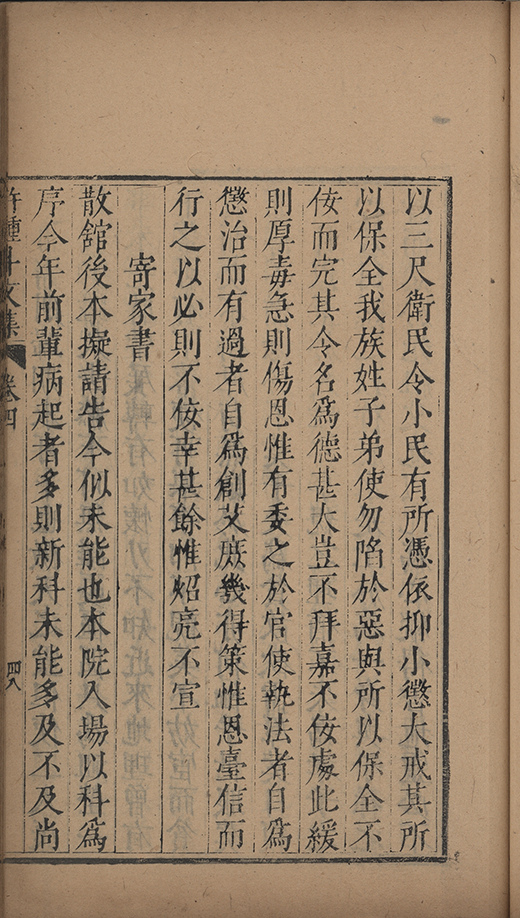 以三尺衛民令小民有所憑依抑小懲大戒其所
以保全我族姓子弟使勿陷於惡與所以保全不
佞而完其令名為德甚大豈不拜嘉不佞處此緩
則厚毒急則傷恩惟有委之於官使執法者自為
懲治而有過者自為創艾庶幾得策惟恩臺信而
行之以必則不佞幸甚餘惟炤亮不宣
寄家書
散舘後本擬請告今似未能也本院入場以科為
序今年前輩病起者多則新科未能多及不及尚
許鍾斗文集
卷四
四八